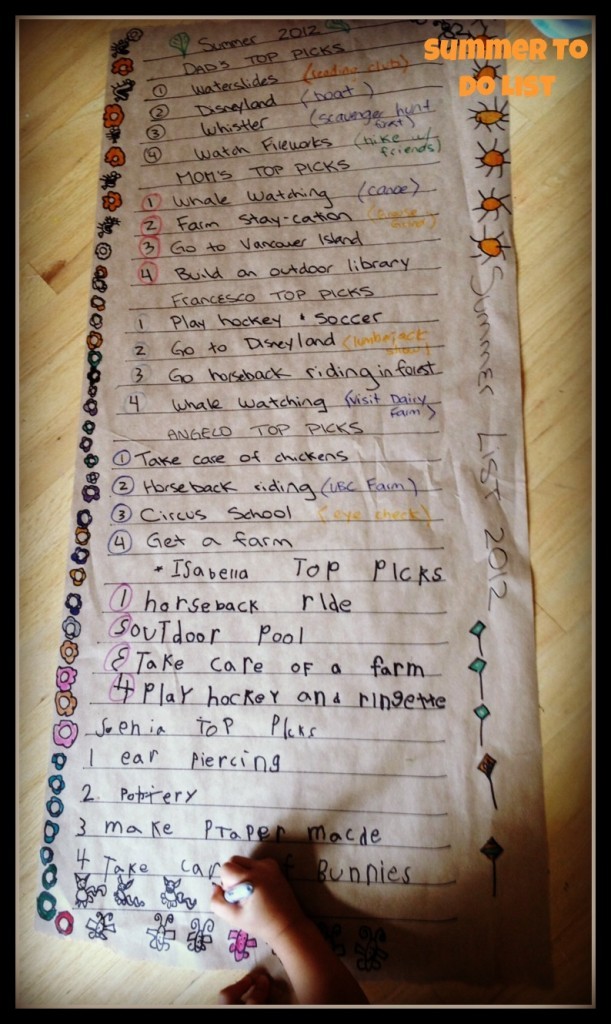 SUMMER TO
DO LIST
Summer 2012
DAD'S TOP PICKS
1 Waterslides (reading club)
2 Disneyland (boat)
3 Whistler (scavenger hunt
4 Watch Fireworks (hike w/
friends)
MOM'S TOP PICKS
1 Whale Watching (canoe)
2 Farm stay-cation
3 Go to Vancouver Island
4 Build an outdoor library
FRANCESCO TOP PICKS
1 Play hockey + Soccer
2 Go to Disneyland (lumberjack
show)
3 Go horseback riding in forest
4 Whale Watching (visit Dairy
Farm)
ANGELO TOP PICKS
1 Take care of chickens
2 Horseback riding (UBC Farm)
3 Circus School (eye check)
4 Get a farm
* ISabella TOP PICKS
1 horseback ride
outdoor pool
Take care of a farm
4 Play hockey and ringette
TOP PIcks
1 ear piercing
2. 
3 make Ptaper macde
4 Take Bunnies
SUMMER LIST 2012